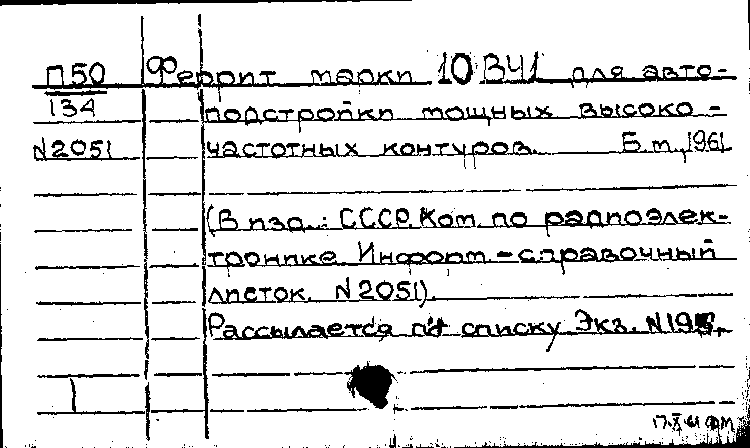 П50 Феррит марки 10ВЧ1 для авто-
134 подстройки мощных высоко-
N2051 частотных контуров. Б.м., 1961
(В изд.: СССР. Ком. по радиоэлек-
тронике. Информ.-справочный
листок. N2051).
Рассылается по списку Экз. N19
17.X 61 ФМ